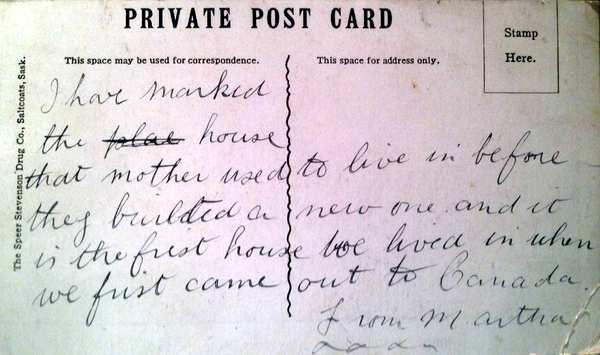 PRIVATE POST CARD
Stamp
Here.
This space may be used for correspondence.
This space for address only.
The Speer Stevenson Drug Co., Saltcoats, Sask.
I have marked
the plac house
that mother used to live in before
they builded a new one and it
is the first house we lived in when
we first came out to Canada.
From Martha